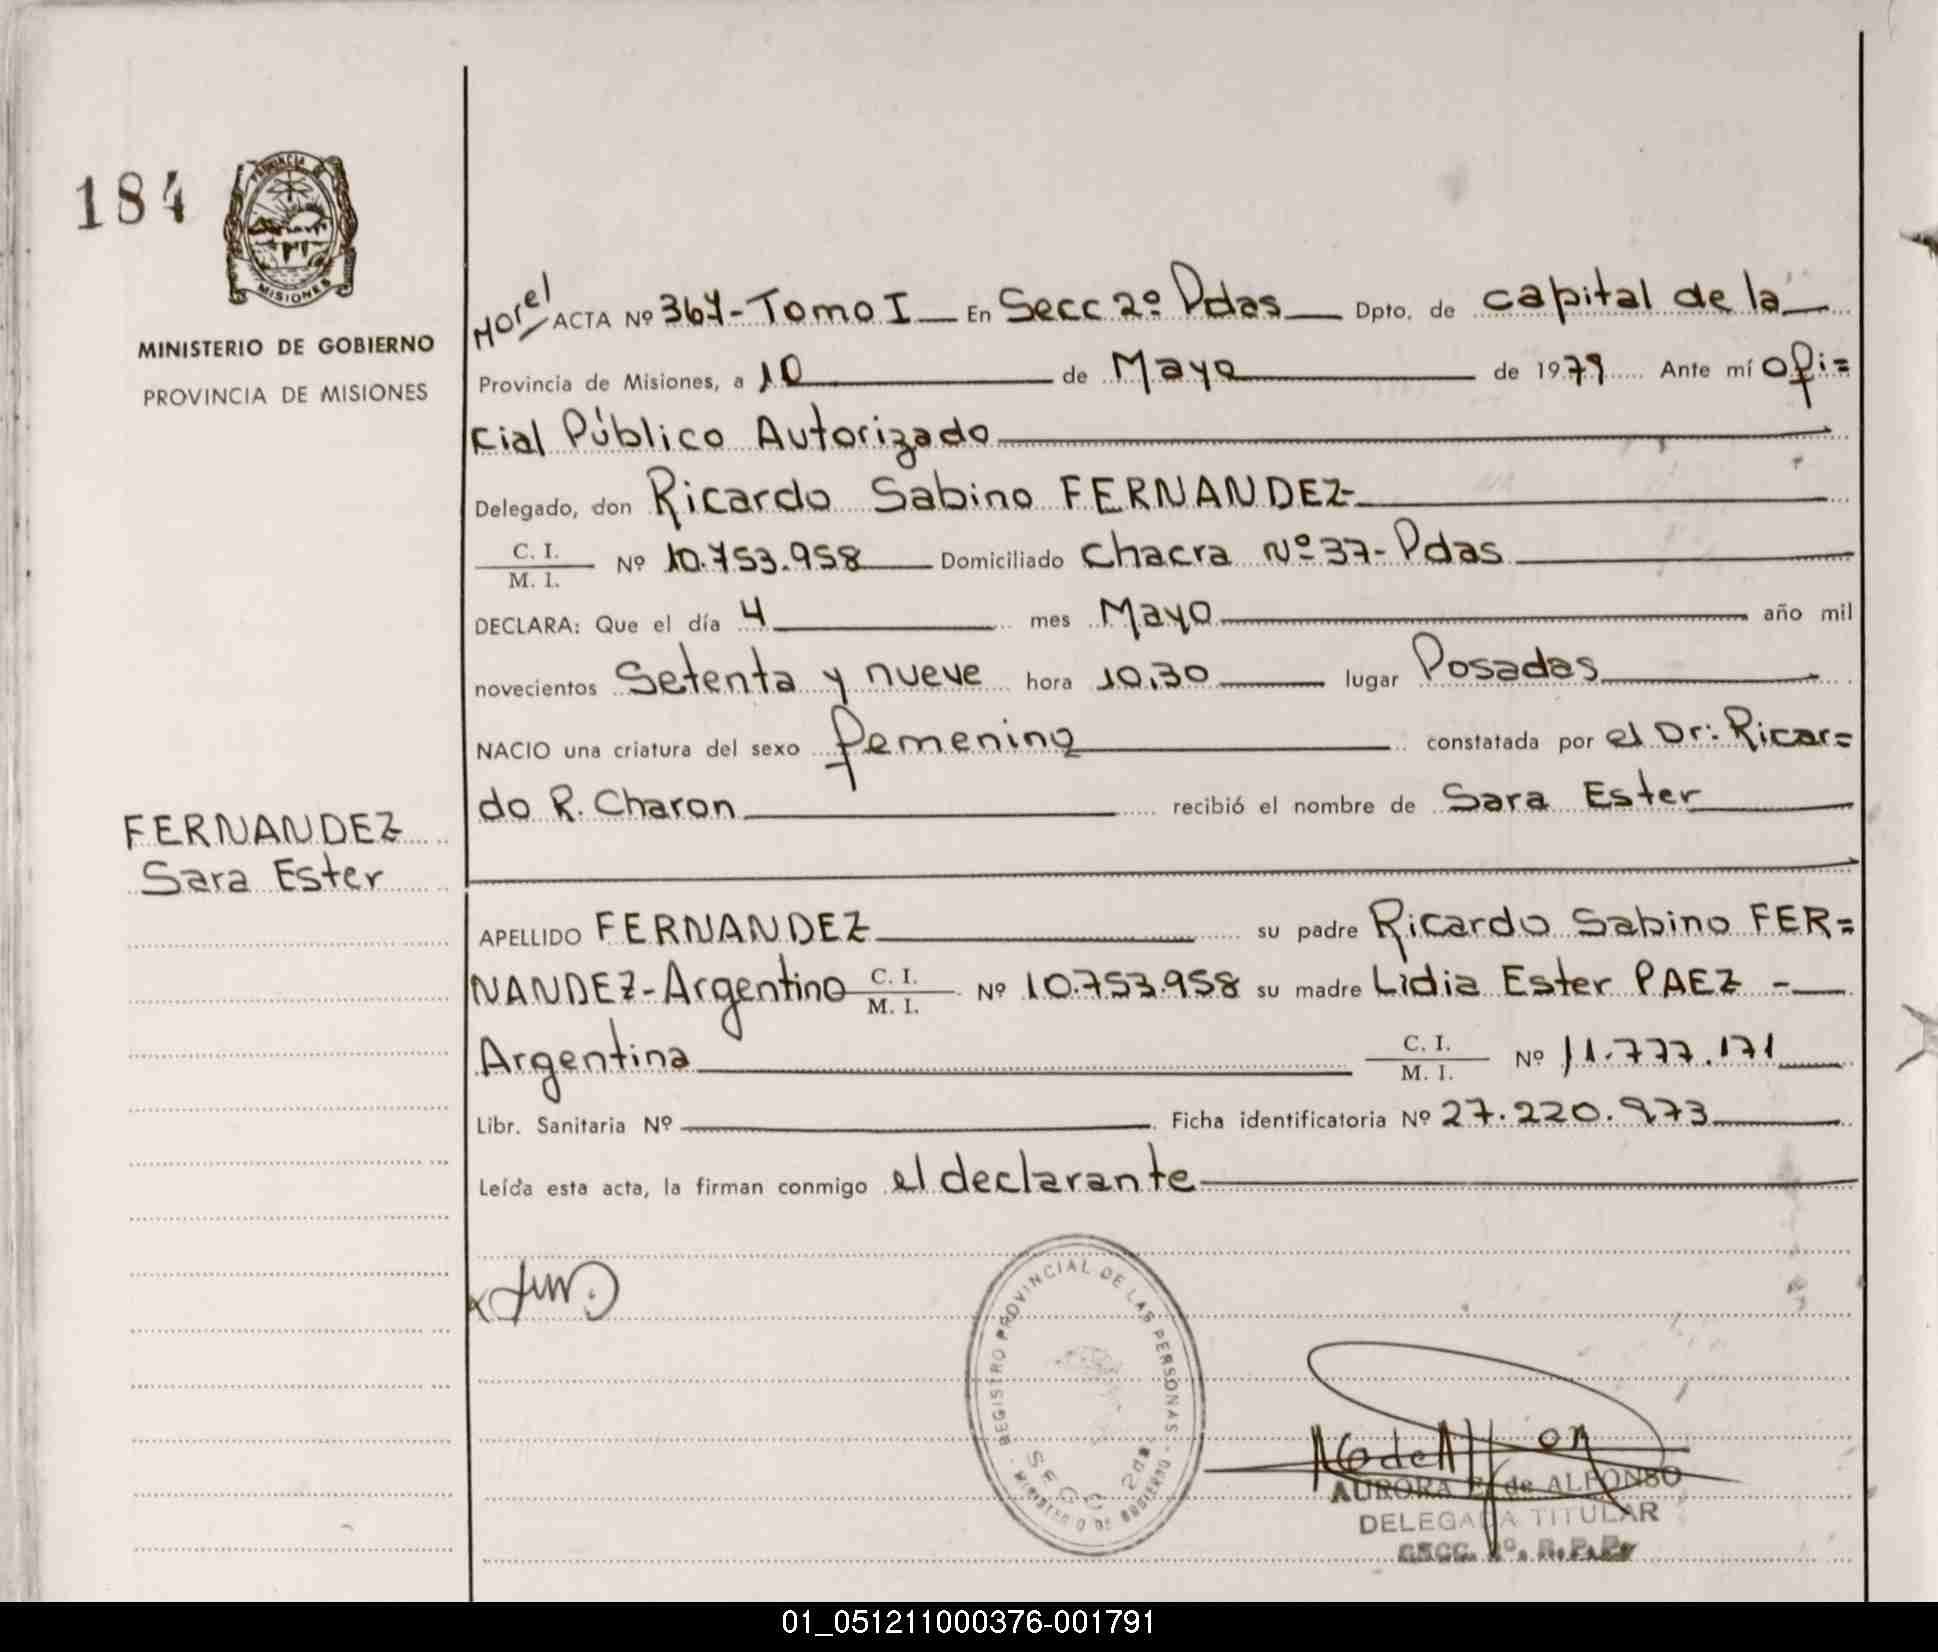 184
PROVINCIA DE
MISIONES
MINISTERIO DE GOBIERNO
PROVINCIA DE MISIONES
FERNANDEZ
Sara Ester
Morel ACTA Nº 367-Tomo I En Secc 2º Pdas Dpto. de capital de la
Provincia de Misiones, a 10 de Mayo de 1979 Ante mí Ofi=
cial Público Autorizado
Delegado, don Ricardo Sabino FERNANDEZ
C. I.
M. I.
Nº 10.753.958 Domiciliado Chacra Nº 37-Pdas
DECLARA: Que el día 4 mes Mayo año mil
novecientos Setenta y nueve hora 10,30 lugar Posadas
NACIO una criatura del sexo femenino constatada por el Dr: Ricar=
do R. Charon recibió el nombre de Sara Ester
APELLIDO FERNANDEZ su padre Ricardo Sabino FER=
NANDEZ-Argentino C. I. M. I. Nº 10.753.958 su madre Lidia Ester PAEZ -
Argentina C. I. M. I. Nº 11.777.171
Libr. Sanitaria Nº Ficha identificatoria Nº 27.220.973
Leída esta acta, la firman conmigo el declarante
REGISTRO PROVINCIAL DE LAS PERSONAS
SECC. 2da.
MINISTERIO DE GOBIERNO
AURORA de ALFONSO
DELEGADA TITULAR
SECC. 2º. R.P.P.
01_051211000376-001791